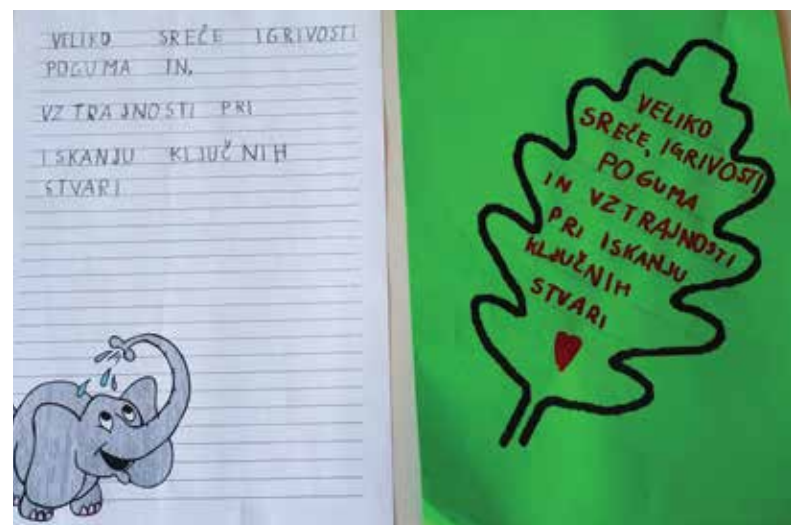 VELIKO SREČE IGRIVOSTI
POGUMA IN,
VZTRAJNOSTI PRI
ISKANJU KLJUČNIH
STVARI
VELIKO
SREČE, IGRIVOSTI
POGUMA
IN VZTRAJNOSTI
PRI ISKANJU
KLJUČNIH
STVARI